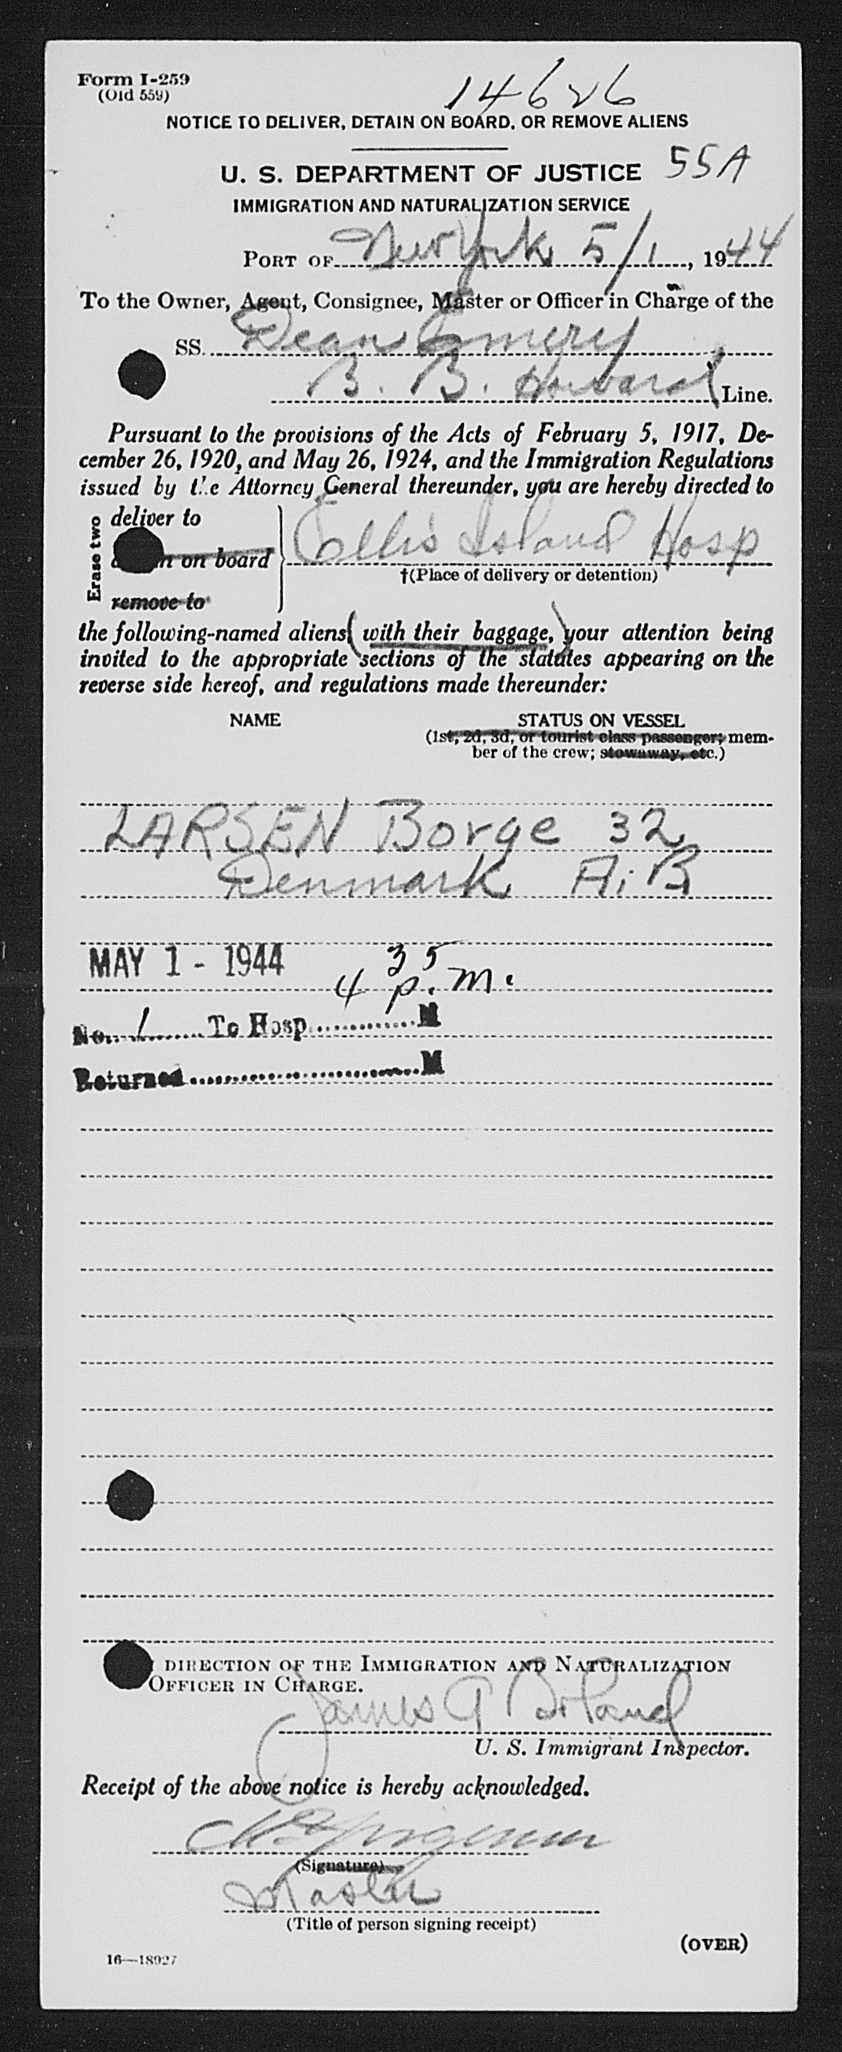 Form I-259
(Old 559)
14626
NOTICE TO DELIVER, DETAIN ON BOARD, OR REMOVE ALIENS
U. S. DEPARTMENT OF JUSTICE 55A
IMMIGRATION AND NATURALIZATION SERVICE
PORT OF New York 5/1, 1944
To the Owner, Agent, Consignee, Master or Officer in Charge of the
SS. Dean Emery
B. B. Howard Line.
Pursuant to the provisions of the Acts of February 5, 1917, De-
cember 26, 1920, and May 26, 1924, and the Immigration Regulations
issued by the Attorney General thereunder, you are hereby directed to
Erase two
deliver to
on board
remove to
Ellis Island Hosp
†(Place of delivery or detention)
the following-named aliens (with their baggage,) your attention being
invited to the appropriate sections of the statutes appearing on the
reverse side hereof, and regulations made thereunder:
NAME STATUS ON VESSEL
(1st, 2d, 3d, or tourist class passenger; mem-
ber of the crew; stowaway, etc.)
LARSEN Borge 32
Denmark A;B
MAY 1 - 1944 4 35 p.m.
No. 1 To Hosp. M
Returned M
DIRECTION OF THE IMMIGRATION AND NATURALIZATION
OFFICER IN CHARGE.
James A Boland
U. S. Immigrant Inspector.
Receipt of the above notice is hereby acknowledged.
(Signature)
Master
(Title of person signing receipt)
(OVER)
16—18927